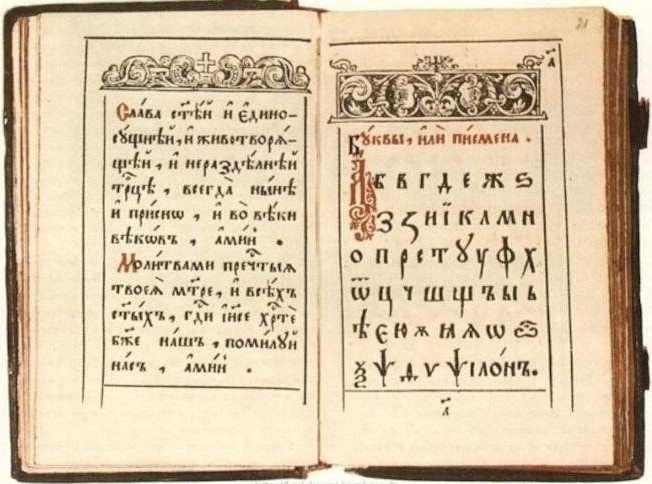 Сла́ва ст҃ѣ́й и҆ є҆дино-
сꙋ́щнѣй, и҆ животворѧ́-
щей, и҆ нераздѣ́лнѣй
трⷪ҇цѣ, всегда̀ ны́нѣ
и҆ при́снѡ, и҆ во вѣ́ки
вѣкѡ́въ, а҆ми́нь.
Моли́твами пречⷭ҇тыѧ
твоеѧ̀ мт҃ре, и҆ всѣ́хъ
ст҃ы́хъ, гдⷭ҇и і҆и҃се хрⷭ҇те́
бж҃е на́шъ, поми́лꙋй
на́съ, а҆ми́нь.
21
Бꙋ́квы, и҆лѝ пи́смена.
А Б В Г Д Е Ж Ѕ
З Ꙁ И Ї К Л М Н
О П Р С Т Ꙋ У Ф Х
Ѿ Ц Ч Ш Щ Ъ Ы Ь
Ѣ Є Ю Ѫ Ѧ Ꙗ Ѡ Ѽ
Ѯ Ѱ Ѳ Ѵ Ѱїло́нъ.